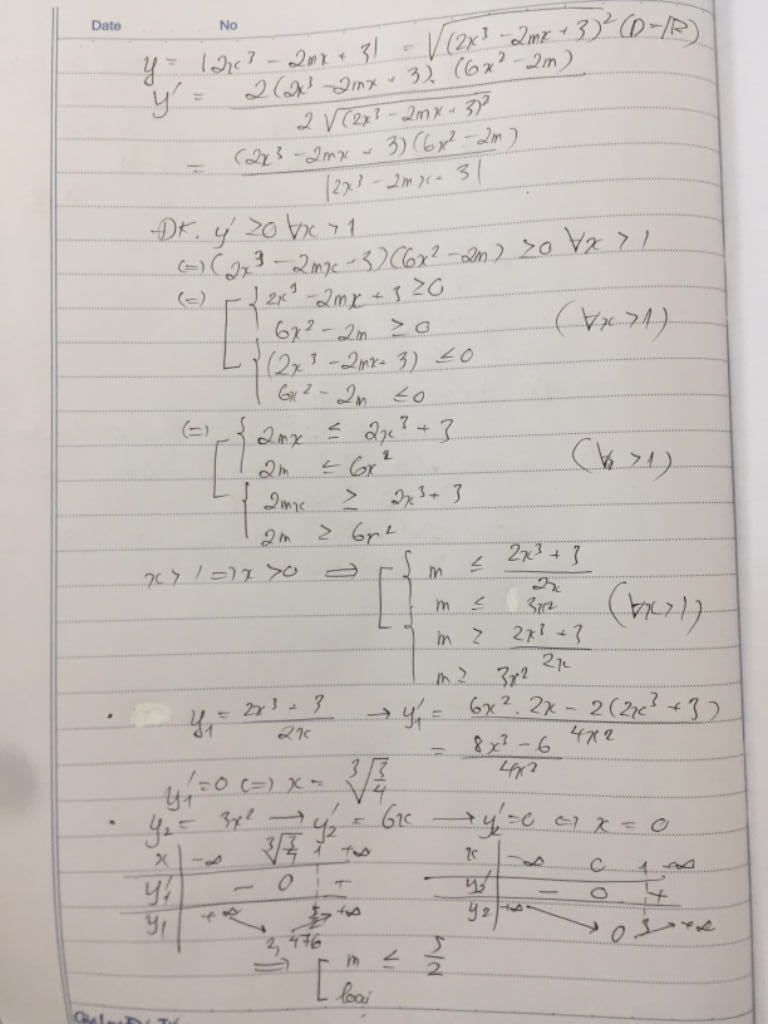 Date No
y = |2x³ - 2mx + 3| = √(2x³ - 2mx + 3)² (D = ℝ)
y' = 2(2x³ - 2mx + 3). (6x² - 2m)
2 √(2x³ - 2mx + 3)²
= (2x³ - 2mx + 3)(6x² - 2m)
|2x³ - 2mx + 3|
ĐK. y' ≥ 0 ∀x > 1
(=) (2x³ - 2mx + 3)(6x² - 2m) ≥ 0 ∀x > 1
(=) [ { 2x³ - 2mx + 3 ≥ 0
6x² - 2m ≥ 0 (∀x > 1)
{ (2x³ - 2mx + 3) ≤ 0
6x² - 2m ≤ 0
(=) [ { 2mx ≤ 2x³ + 3
2m ≤ 6x² (∀x > 1)
{ 2mx ≥ 2x³ + 3
2m ≥ 6x²
x > 1 => x > 0 => [ { m ≤ 2x³ + 3
2x
m ≤ 3x² (∀x > 1)
{ m ≥ 2x³ + 3
2x
m ≥ 3x²
• y₁ = 2x³ + 3 / 2x → y₁' = 6x² . 2x - 2(2x³ + 3) / 4x²
= 8x³ - 6 / 4x²
y₁' = 0 (=) x = ∛3/4
• y₂ = 3x² → y₂' = 6x → y₂' = 0 ⇔ x = 0
x -∞ ∛3/4 1 +∞ x -∞ 0 1 +∞
y₁' - 0 + y₂' - 0 +
y₁ +∞ 2,476 5/2 +∞ y₂ +∞ 0 3 +∞
=> [ m ≤ 5/2
loại